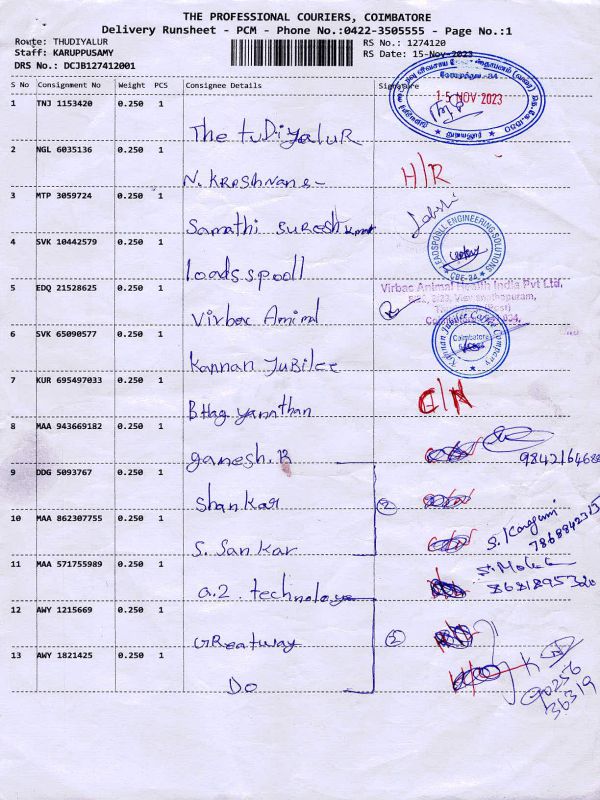 THE PROFESSIONAL COURIERS, COIMBATORE
Delivery Runsheet - PCM - Phone No.:0422-3505555 - Page No.:1
Route: THUDIYALUR
RS No.: 1274120
Staff: KARUPPUSAMY
RS Date: 15-Nov-2023
DRS No.: DCJB127412001
S No Consignment No Weight PCS Consignee Details Signature
15 NOV 2023
1 TNJ 1153420 0.250 1 The tuDiyaluR
2 NGL 6035136 0.250 1 N. KRrshnans H/R
3 MTP 3059724 0.250 1 Samathi suresh kumar
4 SVK 10442579 0.250 1 Loadsspoll
ENGINEERING SOLUTIONS
CBE-34
5 EDQ 21528625 0.250 1 Virbac Amimal
Virbac Animal Health India Pvt Ltd.
6 SVK 65090577 0.250 1 Kannan JuBilee
Kannan Jubilee Coffee Company
Coimbatore
7 KUR 695497033 0.250 1 Bhag yanathan
8 MAA 943669182 0.250 1 ganesh.R
9 DDG 5093767 0.250 1 Shankar 2
10 MAA 862307755 0.250 1 S. Sankar
11 MAA 571755989 0.250 1 a.2. technology
12 AWY 1215669 0.250 1 GReatway 2
13 AWY 1821425 0.250 1 Do
90256
36319